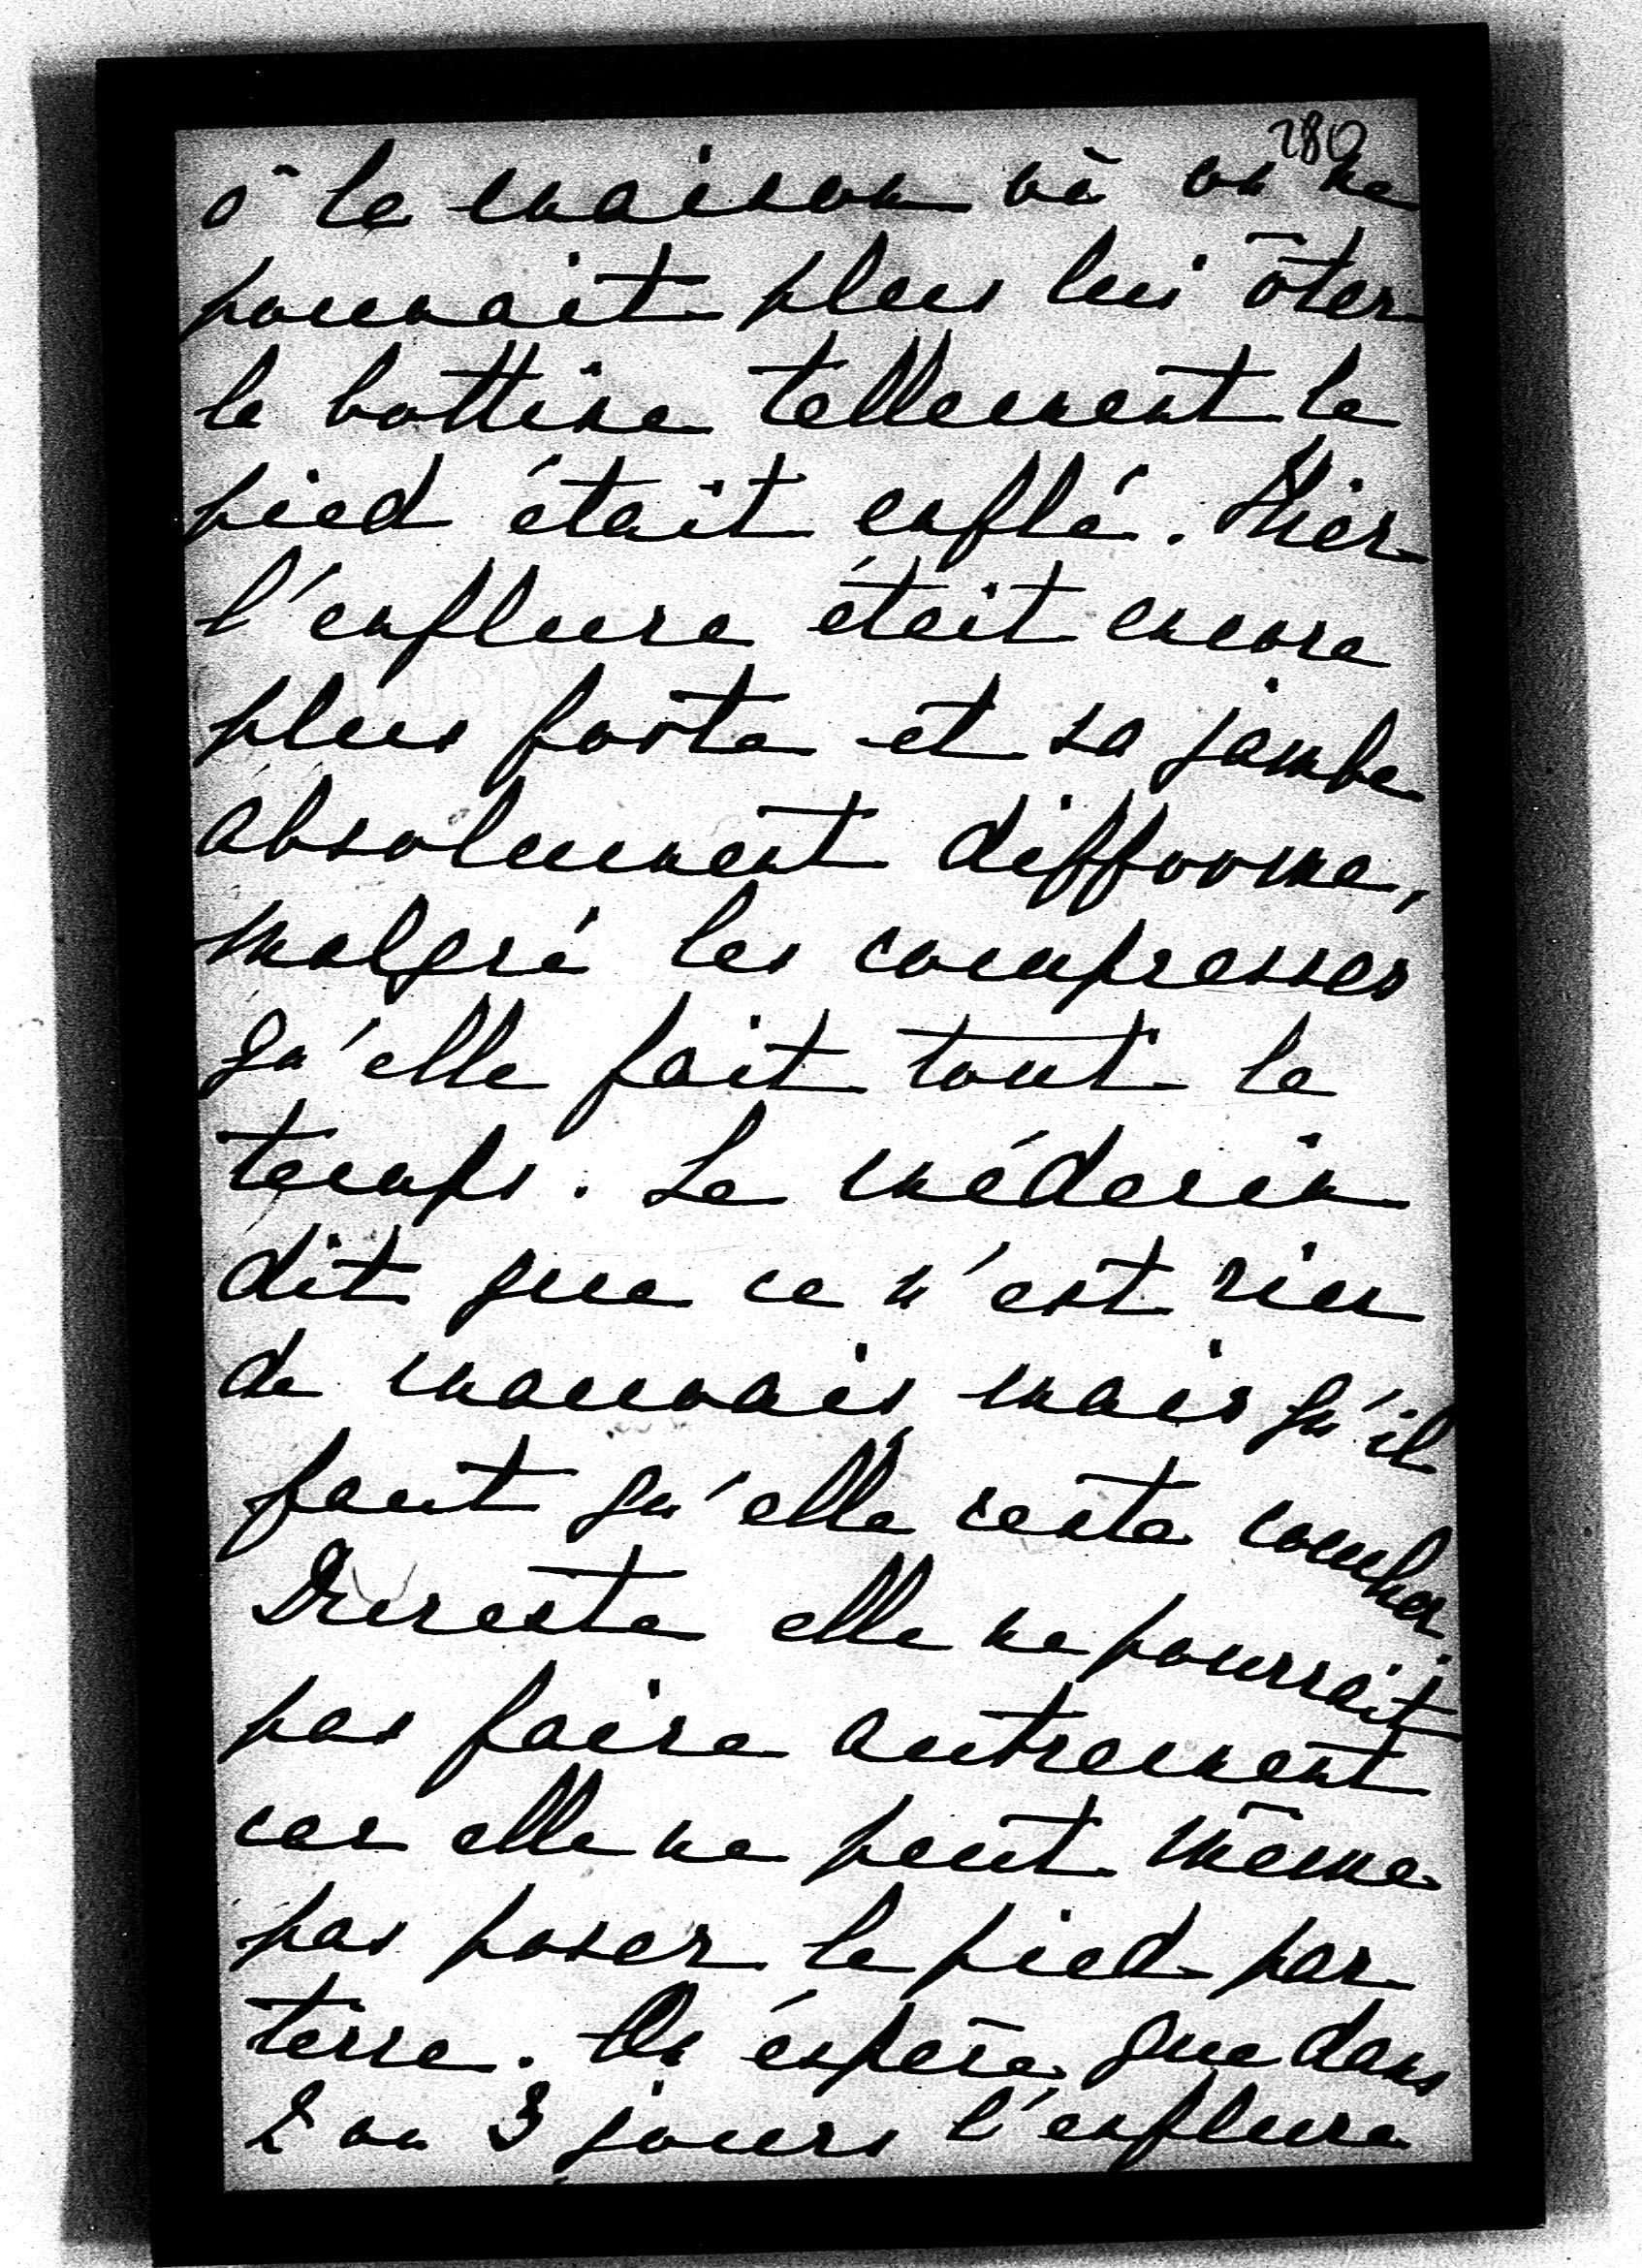 280
à la maison où on ne
pouvait plus lui ôter
la bottine tellement le
pied était enflé. Hier
l'enflure était encore
plus forte et sa jambe
absolument difforme,
malgré les compresses
qu'elle fait tout le
temps. Le médecin
dit que ce n'est rien
de mauvais mais qu'il
faut qu'elle reste coucher.
Dureste elle ne pourrait
pas faire autrement
car elle ne peut même
pas poser le pied par
terre. On éspère que dans
2 ou 3 jours l'enflure